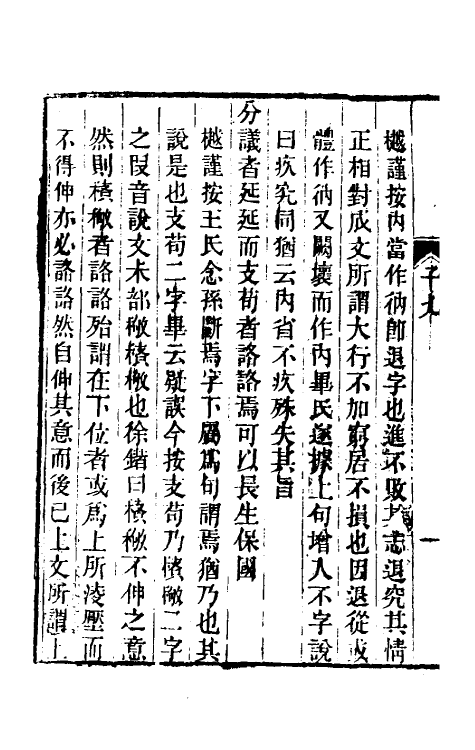 樾謹按內當作㣕卽退字也進不敗其志退究其情
正相對成文所謂大行不加窮居不損也因退從或
體作㣕又闕壞而作內畢氏遂據上句增入不字說
曰疚究同猶云內省不疚殊失其旨
分議者延延而支苟者詻詻焉可以長生保國
樾謹按王氏念孫斷焉字下屬爲句謂焉猶乃也其
說是也支苟二字畢云疑誤今按支苟乃𥡴䅩二字
之叚音說文禾部䅩𥡴䅩也徐鍇曰𥡴䅩不伸之意
然則𥡴䅩者詻詻殆謂在下位者或爲上所淩壓而
不得伸亦必詻詻然自伸其意而後已上文所謂上
子九
一